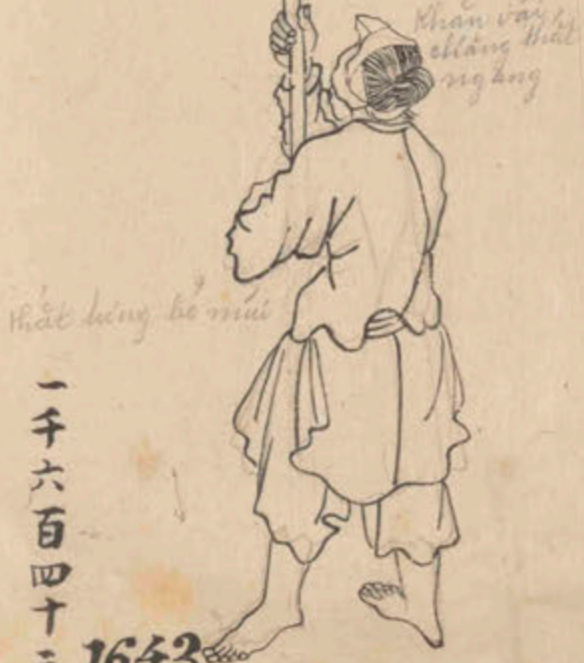 Khăn vải
thắt
ngang
thắt lưng bỏ múi
一千六百四十三
1643